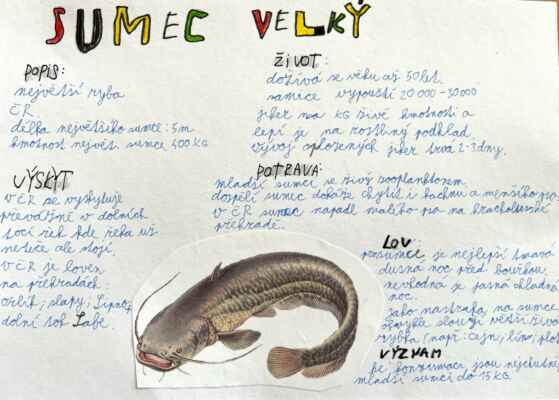 SUMEC VELKÝ
POPIS:
největší ryba
ČR.
délka největšího sumce: 5m
hmotnost největ. sumce 400 KG
VÝSKYT
v ČR se vyskytuje
převážně v dolních
tocí řek kde řeka už
neteče ale stojí.
V ČR je loven
na přehradách:
orlík, slapy, Lipno,
dolní tok Labe.
ŽIVOT:
dožívá se věku až 50 let.
samice vypouští 20 000 - 30000
jiker na KG živé hmotnosti a
lepí je na rostliný podklad
vývoj oplozených jiker trvá 2-3 dny.
POTRAVA:
mladší sumci se živý zooplanktonem.
dospělí sumec dokáže chytit i kachnu a menšího
v ČR sumec napadl malého psa na hracholuské
přehradě.
LOV:
na sumce je nejlepší tmavá
dusná noc před bouřkou
nevhodná je jasná chladná
noc.
jako nástraha na sumce
slouží větší živá
rybka (např: cejn, lín,
VÝZNAM
ke konzumaci jsou nejchutnější
mladší sumci do 15 KG.